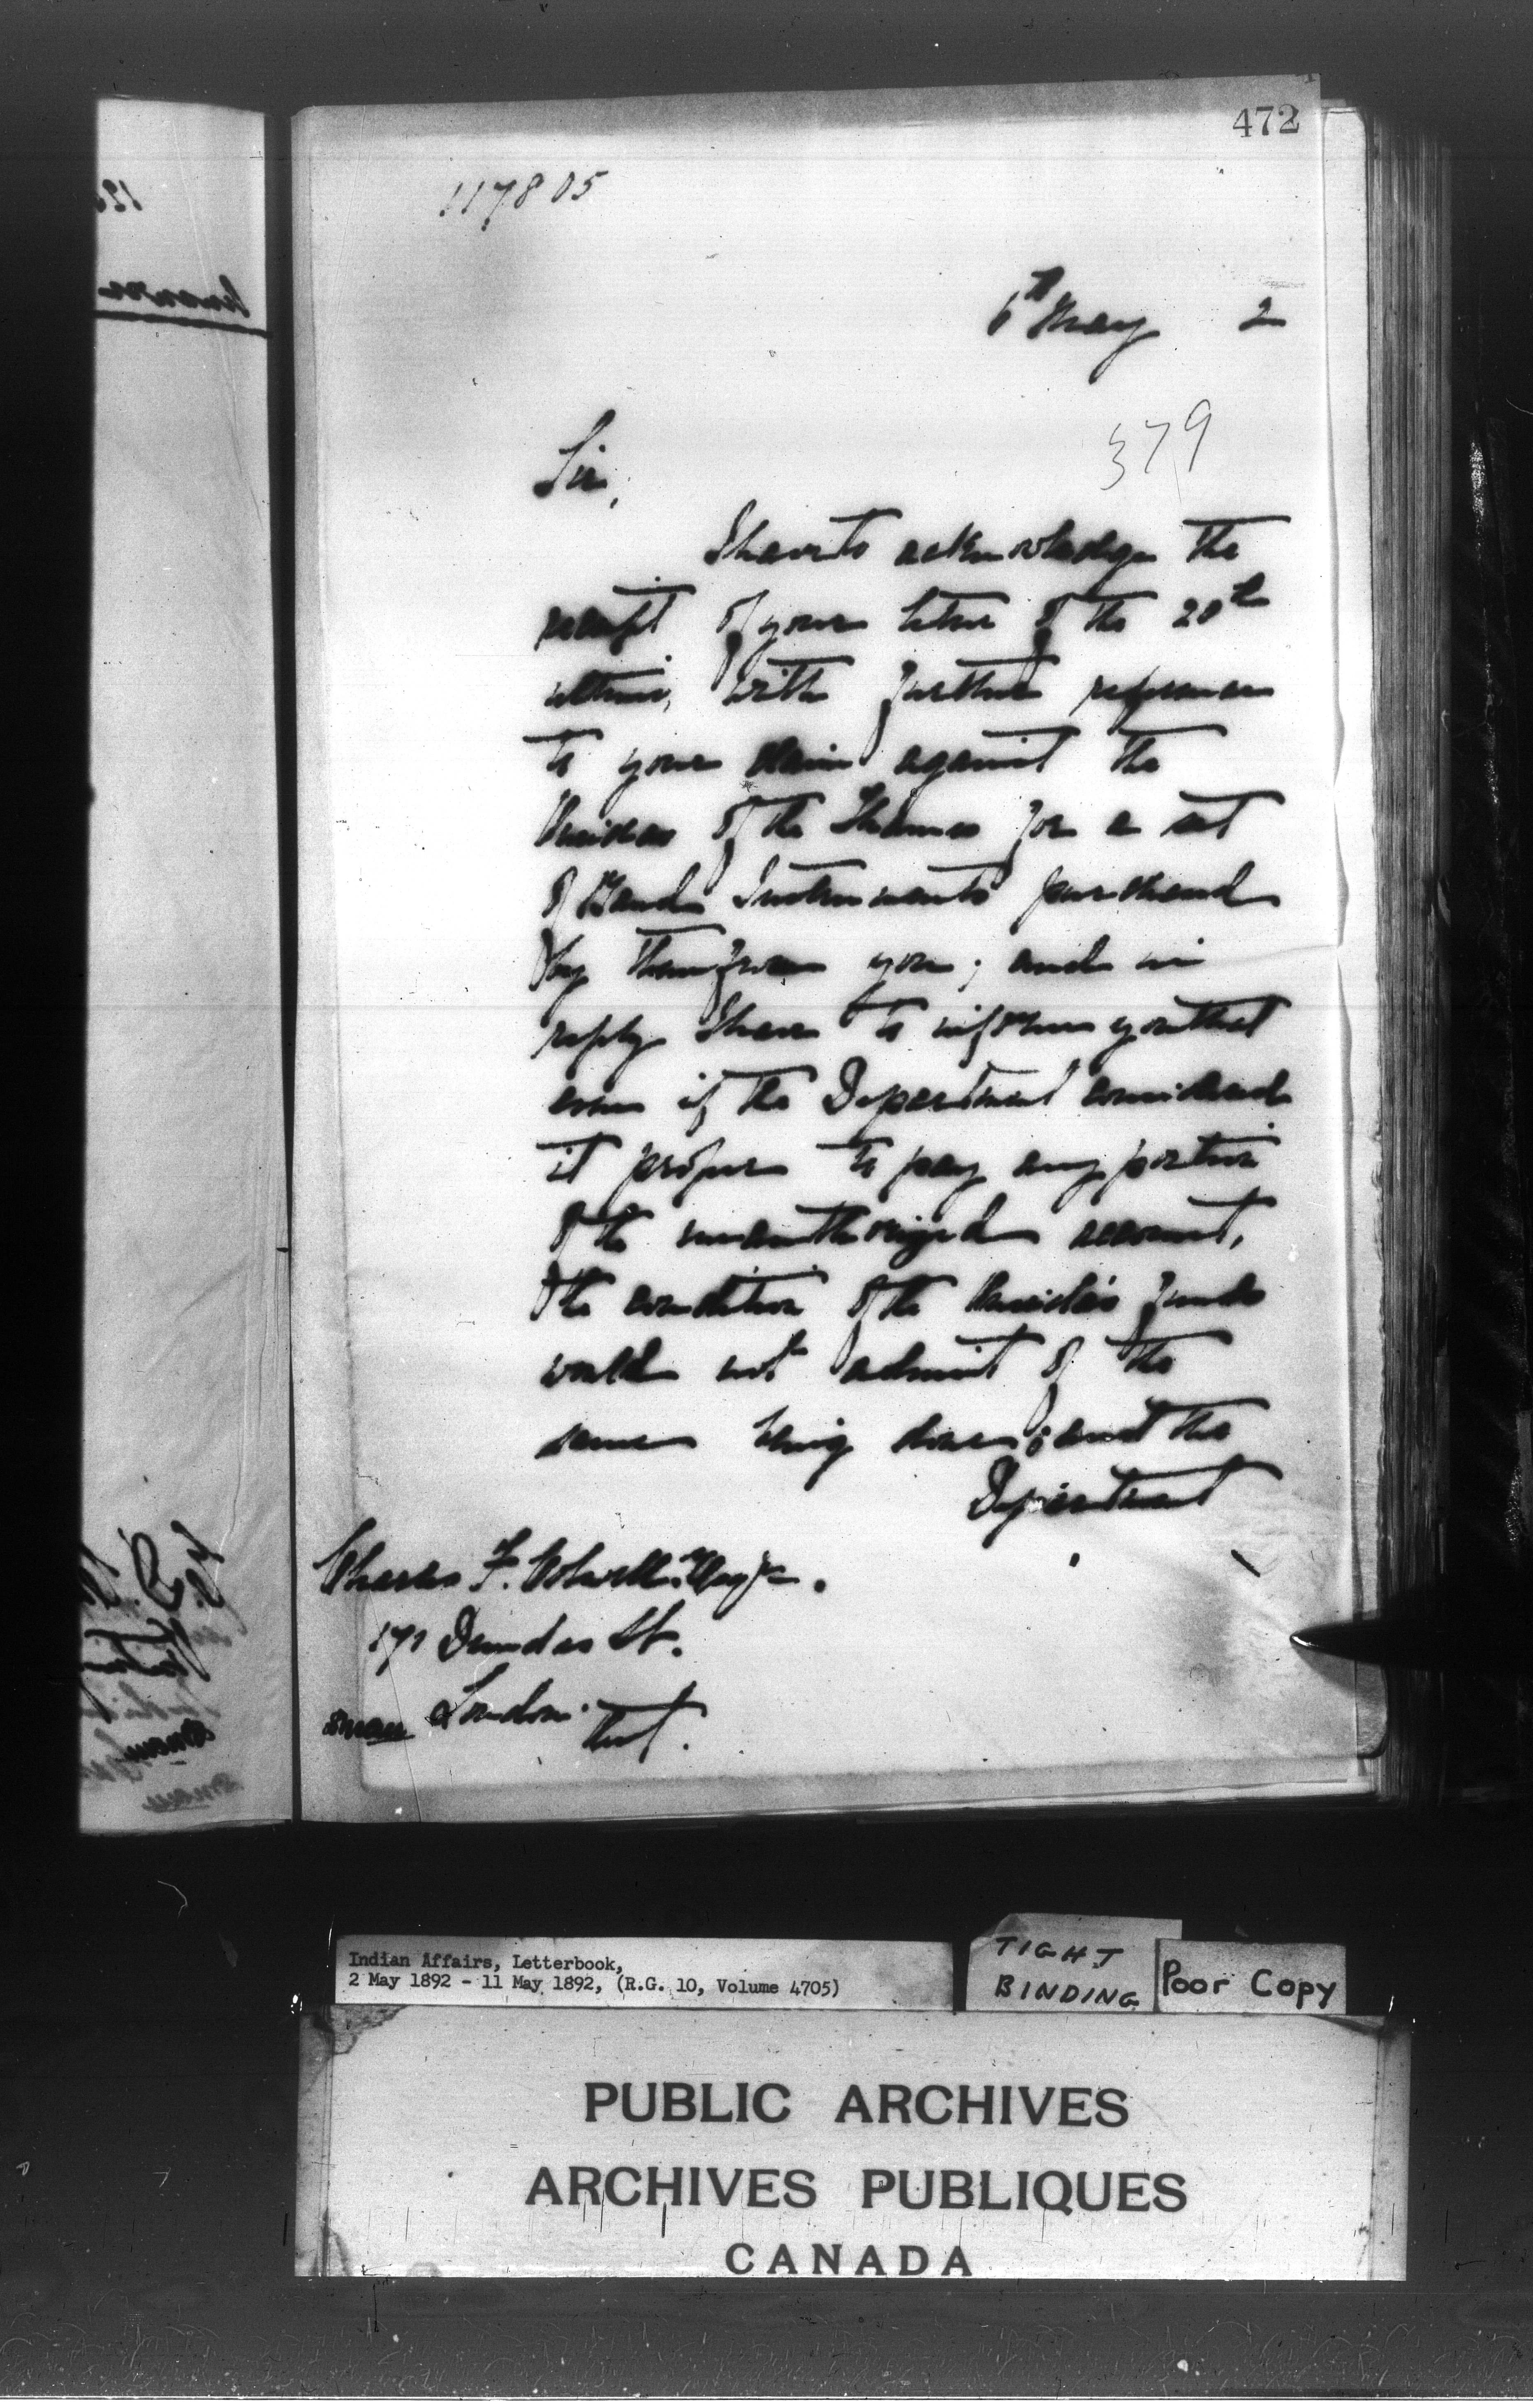 472
117805
6th May 2
379
Sir,
I have to acknowledge the
receipt of your letter of the 20th
ultimo, with further reference
to your claim against the
Oneidas of the Thames for a set
of Band Instruments purchased
by them from you; and in
reply I have to inform you that
even if the Department considered
it proper to pay any portion
of the unauthorized account,
the condition of the Oneidas funds
would not admit of the
same being done; and the
Department
Charles F. Colwell Esqre.
171 Dundas St.
London
Ont.
Indian Affairs, Letterbook,
2 May 1892 - 11 May 1892, (R.G. 10, Volume 4705)
TIGHT
BINDING
Poor Copy
PUBLIC ARCHIVES
ARCHIVES PUBLIQUES
CANADA